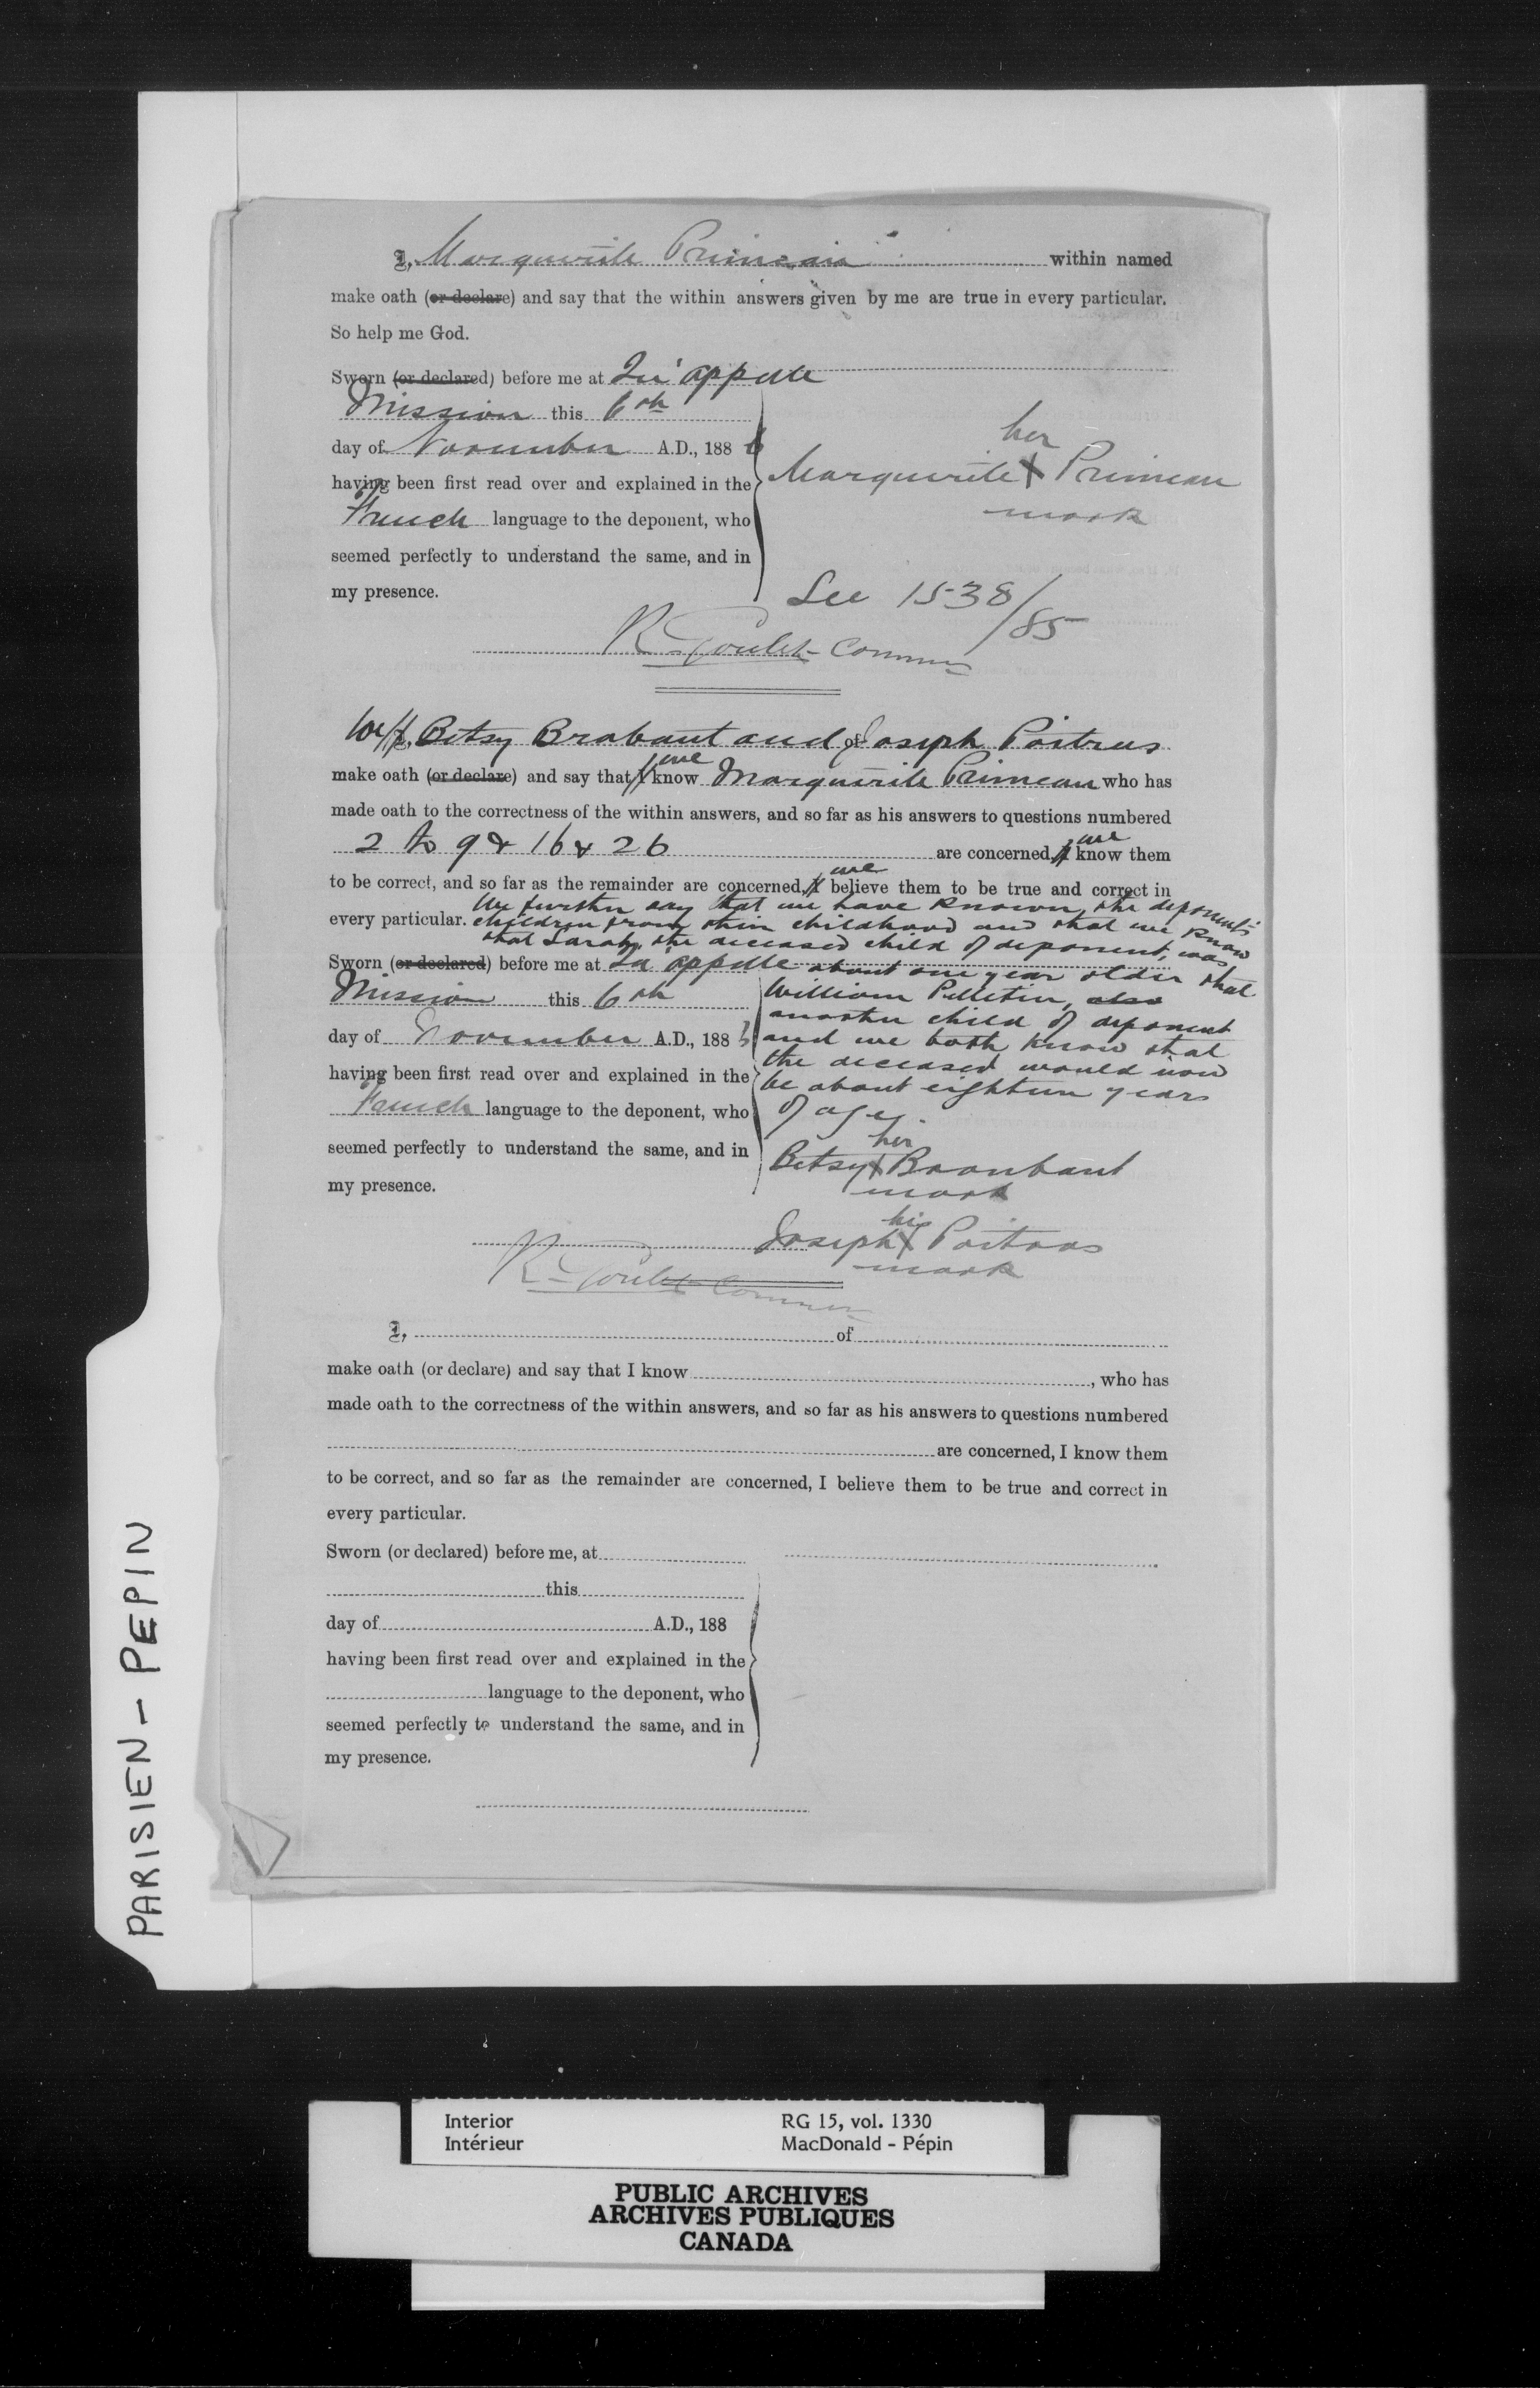 I, Marguerite Primeau within named
make oath (or declare) and say that the within answers given by me are true in every particular.
So help me God.
Sworn (or declared) before me at Qu'appelle
Mission this 6th
day of November A.D., 1886
having been first read over and explained in the
French language to the deponent, who
seemed perfectly to understand the same, and in
my presence.
her
Marguerite X Primeau
mark
See 1538/85
R Goulet Commr
We/I, Betsy Brabant and of Joseph Poitras
we
make oath (or declare) and say that I know Marguerite Primeau who has
made oath to the correctness of the within answers, and so far as his answers to questions numbered
we
2 to 9 & 16 & 26 are concerned, I know them
we
to be correct, and so far as the remainder are concerned, I believe them to be true and correct in
every particular. We further say that we have known the deponent's
children from their childhood and that we know
that Sarah, the deceased child of deponent, was
about one year older that
William Pelletier, also
another child of deponent
and we both know that
the deceased would now
be about eighteen years
of age.
Sworn (or declared) before me at Qu'appelle
Mission this 6th
day of November A.D., 1886
having been first read over and explained in the
French language to the deponent, who
seemed perfectly to understand the same, and in
my presence.
her
Betsy X Brabant
mark
his
Joseph X Poitras
mark
R Goulet Commr
I, of
make oath (or declare) and say that I know , who has
made oath to the correctness of the within answers, and so far as his answers to questions numbered
are concerned, I know them
to be correct, and so far as the remainder are concerned, I believe them to be true and correct in
every particular.
Sworn (or declared) before me, at
this
day of A.D., 188
having been first read over and explained in the
language to the deponent, who
seemed perfectly to understand the same, and in
my presence.
PARISIEN - PEPIN
Interior RG 15, vol. 1330
Intérieur MacDonald - Pépin
PUBLIC ARCHIVES
ARCHIVES PUBLIQUES
CANADA